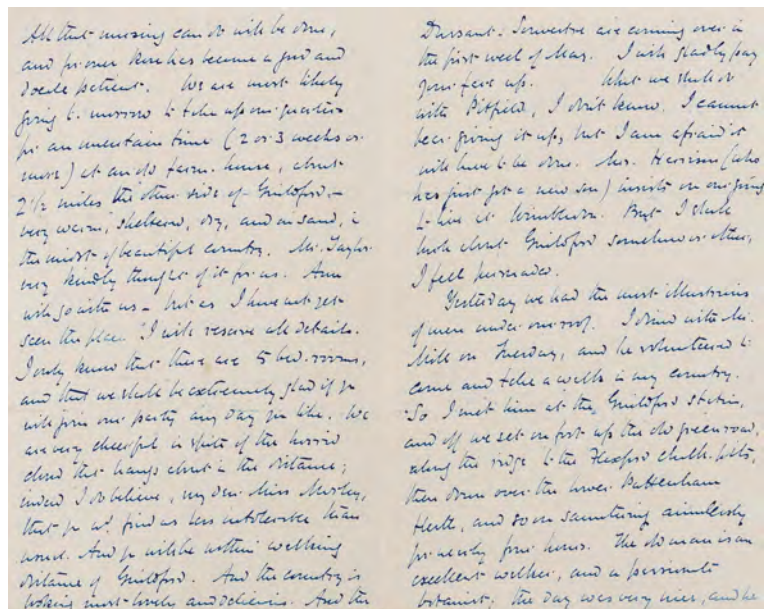 All that nursing can do will be done,
and poor Kate has become a good and
docile patient. We are most likely
going to-morrow to take up our quarters
for an uncertain time (2 or 3 weeks or
more) at an old farm-house, about
2 1/2 miles the other side of Guildford, -
very warm, sheltered, dry, and on sand, in
the midst of beautiful country. Mr. Taylor
very kindly thought of it for us. Ann
will go with us - but as I have not yet
seen the place I will reserve all details.
I only know that there are 5 bed-rooms,
and that we shall be extremely glad if you
will join our party any day you like. We
are very cheerful in spite of the horrid
cloud that hangs about in the distance;
indeed I do believe, my dear Miss
that you wd. find us less intolerable than
usual. And you will be within walking
distance of Guildford. And the country is
looking most lovely and delicious. And the
Durant-Souvestre are coming over in
the first week of May. I will gladly pay
your fare up. What we shall do
with Pitfield, I don't know. I cannot
bear giving it up, but I am afraid it
will have to be done. Mrs. Harrison (who
has just got a new son) insists on our going
to live at Wimbledon. But I shall
hook about Guildford somehow or other,
I feel persuaded.
Yesterday we had the most illustrious
of men under our roof. I dined with Mr.
Mill on Tuesday, and he volunteered to
come and take a walk in my country.
So I met him at the Guildford station,
and off we set on foot up the old green road,
along the ridge to the chalk-pits,
then down over the lower Puttenham
Heath, and so on sauntering aimlessly
for nearly five hours. The old man is an
excellent walker, and a passionate
botanist; the day was very nice, and he